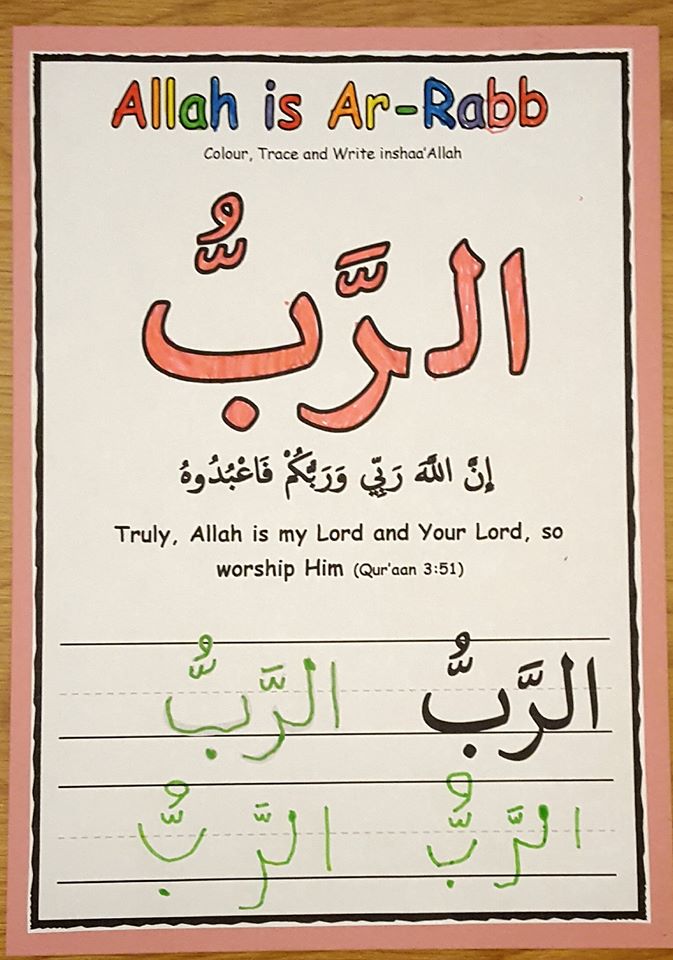 Allah is Ar-Rabb
Colour, Trace and Write inshaa'Allah
الرَّبُّ
إِنَّ اللَّهَ رَبِّي وَرَبُّكُمْ فَاعْبُدُوهُ
Truly, Allah is my Lord and Your Lord, so
worship Him (Qur'aan 3:51)
الرَّبُّ الرَّبُّ
الرَّبُّ الرَّبُّ